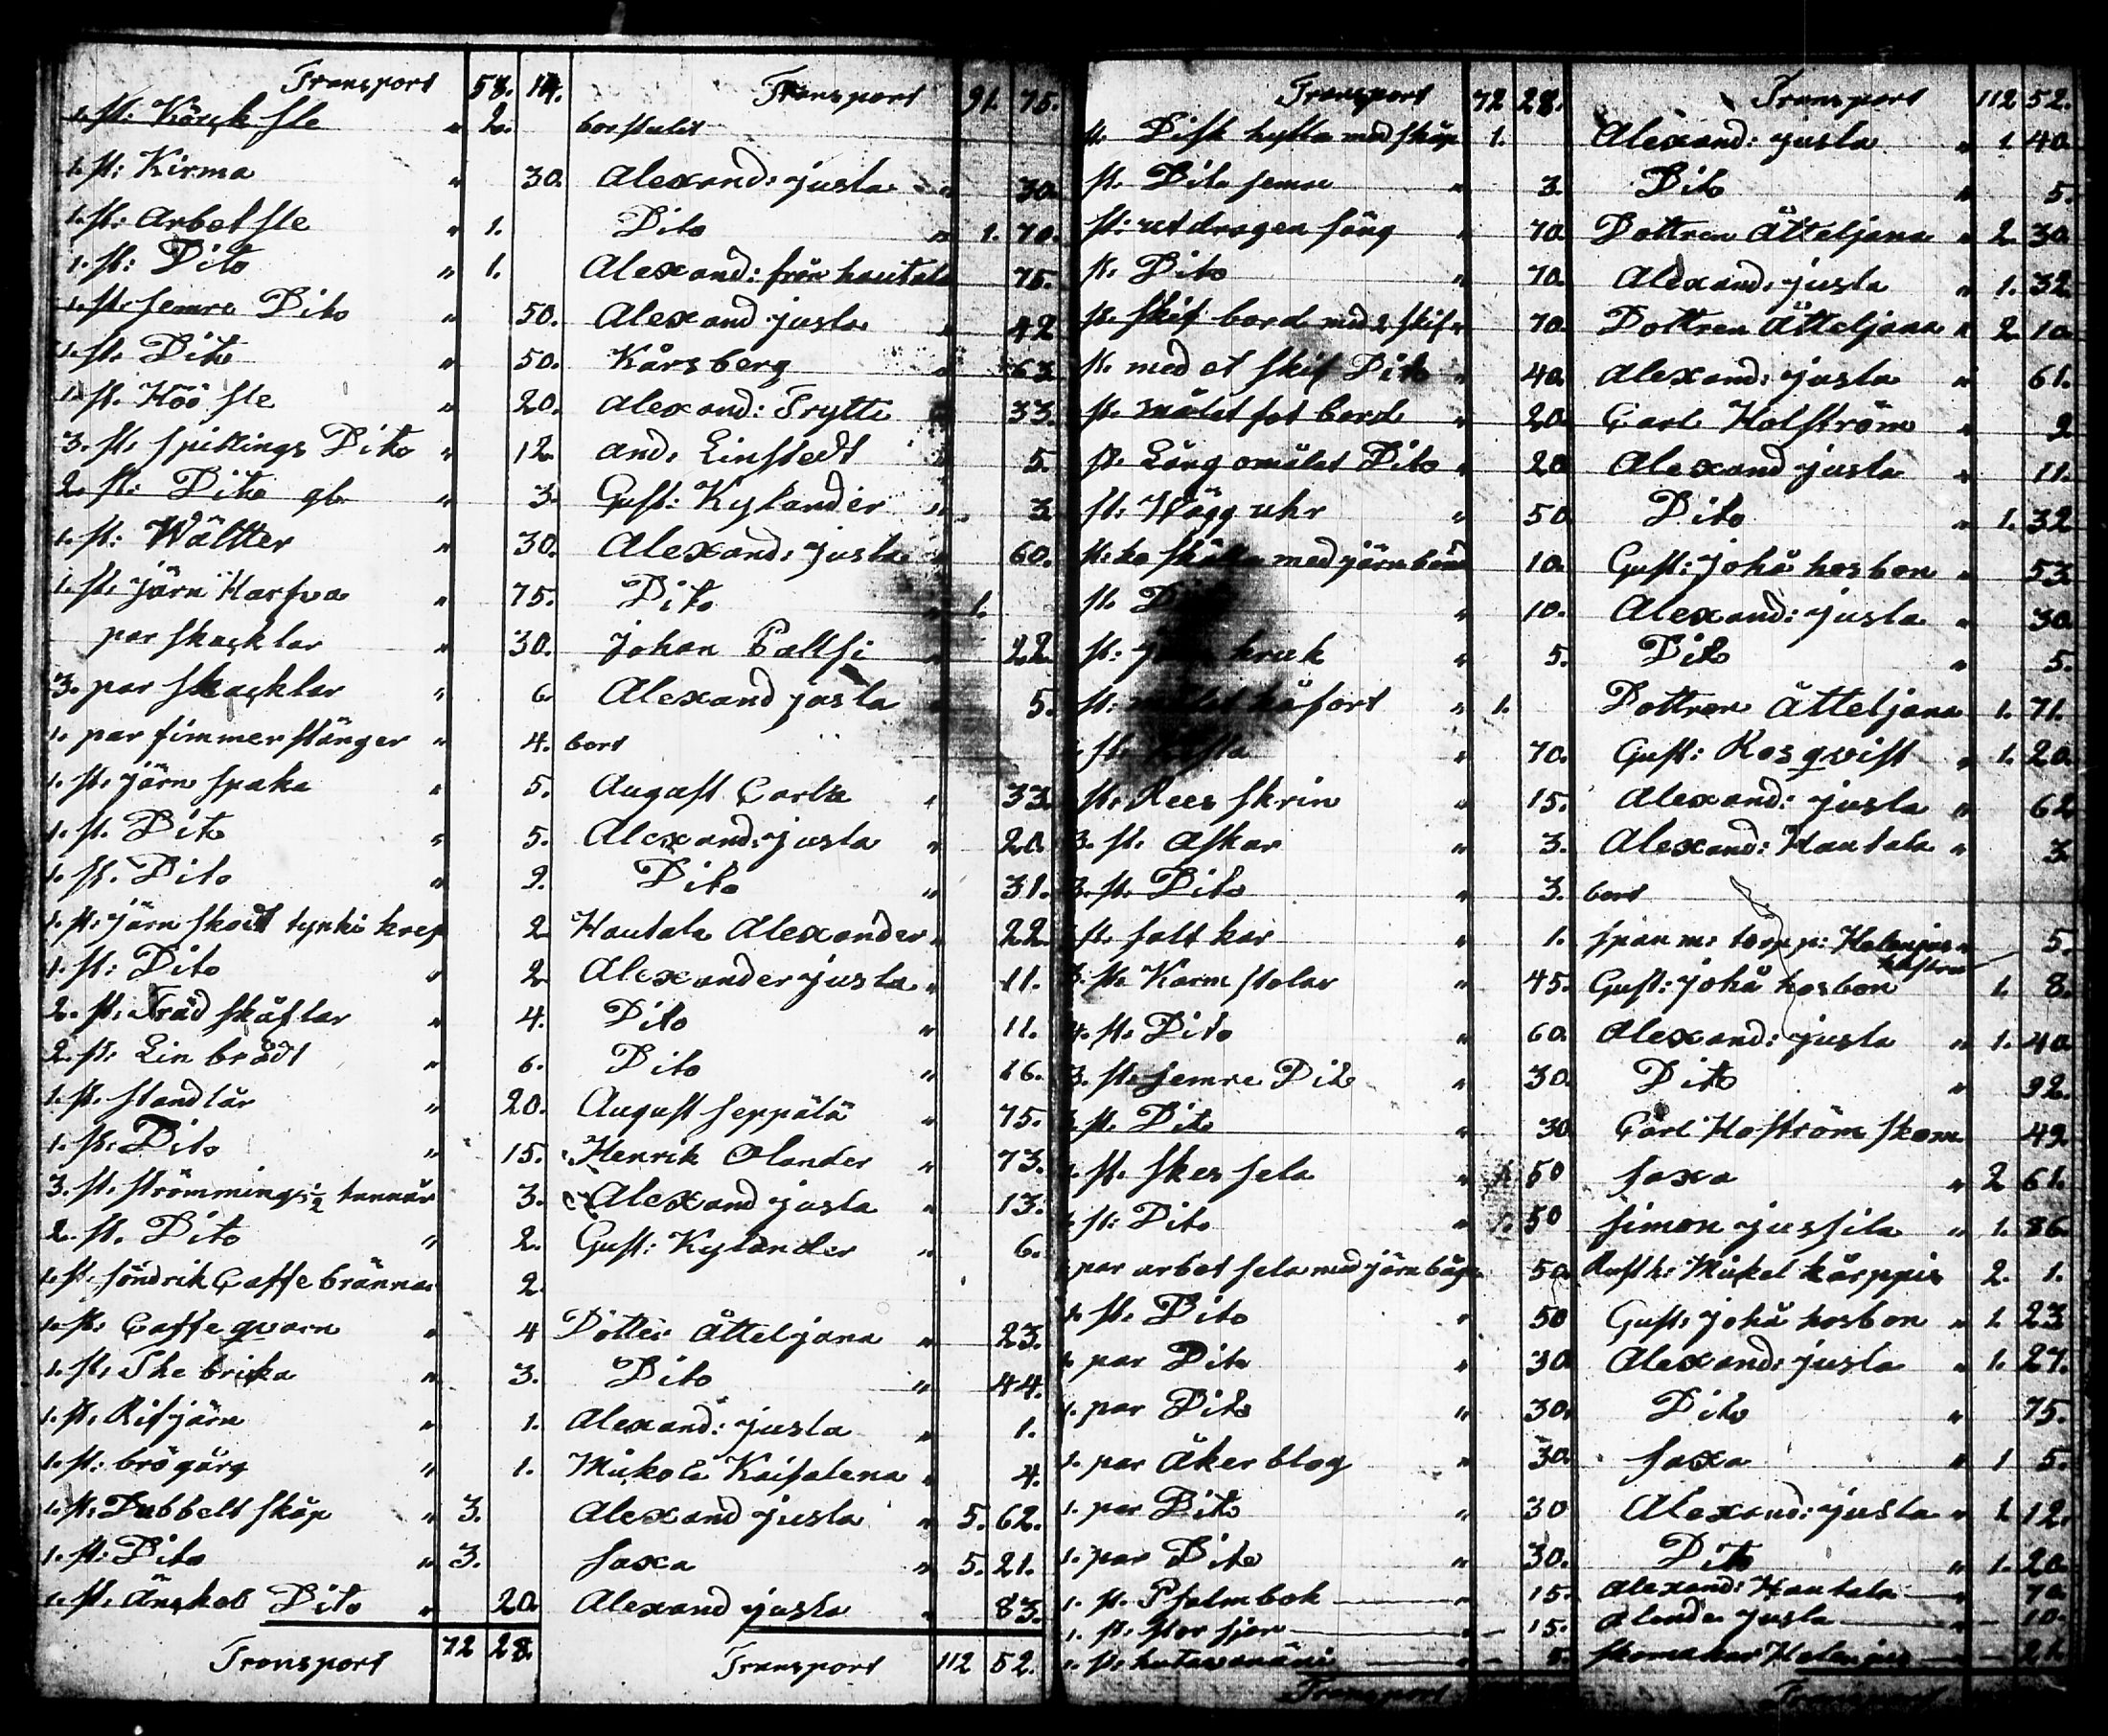 Transport 58. 14. Transport 91. 75.
1. st: Körck sle " 2. borstulit
1. st: Kirma " 30. Alexand: justa " 30.
1. st: arbet sle " 1. Dito " 1. 70.
1. st: Dito " 1. Alexand: från hautala 75.
1. st: semre Dito " 50. Alexand justa " 42
1. st. Dito " 50. Kårsberg " 63
1. st. Höö sle " 20. Alexand: Trytti 33.
3. st. spillings Dito " 12. and. Linstedt " 5.
2. st: Dito gl. " 3. Gust: Kylander " 3
1. st: Wältter " 30. Alexand: justa " 60.
1. st. järn Harfva " 75. Dito " 1.
par skacklar " 30. Johan Pallsi " 22.
3. par skacklar " 6. Alexand justa 5.
1. par fimmerstänger " 4. bort
1. st. järn spaka " 5. August Carls " 33.
1. st. Dito " 5. Alexand: justa " 20.
1. st. Dito " 9. Dito " 31.
1. st: järn skodt tynki kref 2 Hautala Alexander " 22.
1. st: Dito " 2 Alexander justa " 11.
2. st. Träd skäflar " 4. Dito " 11.
2. st. Lin brådt " 6. Dito " 16.
1. st. standlår " 20. August Seppälä " 75.
1. st. Dito " 15. Henrik Olander " 73.
3. st. strömmings ½ tunnår 3. Alexand justa " 13.
2. st. Dito " 2. Gust: Kylander " 6.
1. st. söndrik Caffe brännar 2.
1. st: Caffe qvarn " 4 Dotter Ätteljana " 23.
1. st. The brika " 3. Dito " 44.
1. st. Rifjärn " 1. Alexand: justa " 1.
1. st: brögärg " 1. Mickola Kaisalena " 4.
1. st: Dubbelt skåp " 3. Alexand justa " 5. 62.
1. st: Dito " 3. saxa " 5. 21.
1. st. änckel Dito " 20. Alexand justa " 83.
Transport 72 28. Transport 112 52.
Transport 72 28. Transport 112 52.
st. Disk hylla med skåp 1. Alexand: justa " 1. 40.
st. Dito semre " 3. Dito " 5.
st: utdragen säng " 70. Dottren Ätteljana " 2. 30
st. Dito " 70. Alexand: justa " 1. 32.
st. skif bord med 2 skif " 70. Dottren Ätteljana " 2. 10.
st. med et skif Dito " 40. Alexand: justa " 61.
st. målat fot bord " 20. Carl Holström " 9
st. Lång omålat Dito " 20 Alexand justa " 11.
st: Wägg uhr " 50 Dito " 1. 32
st: med järnbånd 10. Gust: Johå hosbon " 53.
st. " 10. Alexand: justa " 30
st: kruk " 5. Dito " 5.
st: kåfort " 1. Dottren Ätteljana 1. 71.
st. " 70. Gust: Rosqvist " 1. 20.
st: Rees skrin " 15. Alexand: justa " 62
3. st. askar " 3. Alexand: Hautala " 3
3. st. Dito " 3. bort
st. salt kar " 1. spån m: torpp: Helenius 5.
3. st. Karm stolar " 45. Gust: Johå hosbon 1. 8.
4. st. Dito " 60. Alexand: justa " 1. 40.
3. st. semre Dito " 30. Dito " 92.
3. st. Dito " 30 Carl Hoström skom 49.
1. st. skes sela " 50 saxa " 2 61.
1. st: Dito " 50 Simon jussila " 1. 86.
par arbet sela med järn båg 50. Rusth: Mickel kårppis 2. 1.
1. st. Dito " 50 Gust: Johå hosbon " 1. 23
1. par Dito " 30 Alexand: justa " 1. 27.
1. par Dito " 30. Dito " 75.
1. par åker blog " 30. saxa " 1 5.
1. par Dito " 30 Alexand: justa " 1. 12.
1. par Dito " 30. Dito " 1. 20.
1. st. Psalmbok 15. Alexand: Hautala 70.
1. st. stor 15. justa 10.
1. st. skomakar Helenius
Transport Transport